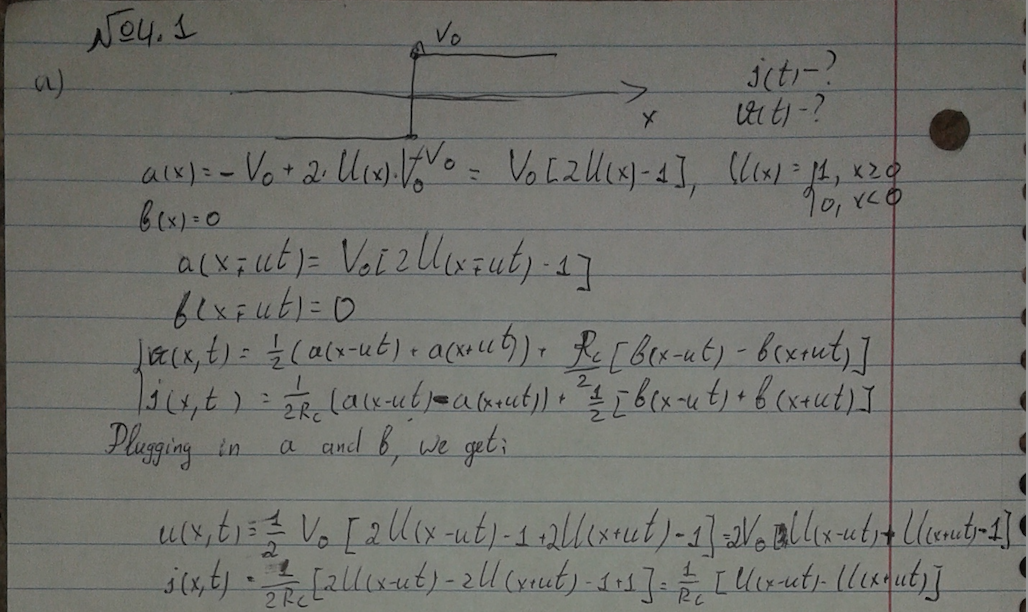 №4.1
V₀
a)
j(t)-?
v(t)-?
x
a(x) = -V₀ + 2·U(x)·V₀ = V₀[2U(x)-1], U(x) = {1, x≥0
0, x<0
b(x)=0
a(x∓ut) = V₀[2U(x∓ut)-1]
b(x∓ut) = 0
{u(x,t) = 1/2 (a(x-ut) + a(x+ut)) + Rc/2 [b(x-ut) - b(x+ut)]
j(x,t) = 1/2Rc (a(x-ut) - a(x+ut)) + 1/2 [b(x-ut) + b(x+ut)]
Plugging in a and b, we get:
u(x,t) = 1/2 V₀ [2U(x-ut)-1+2U(x+ut)-1] = 2V₀ [U(x-ut) + U(x+ut)-1]
j(x,t) = 1/2Rc [2U(x-ut) - 2U(x+ut) - 1+1] = 1/Rc [U(x-ut) - U(x+ut)]